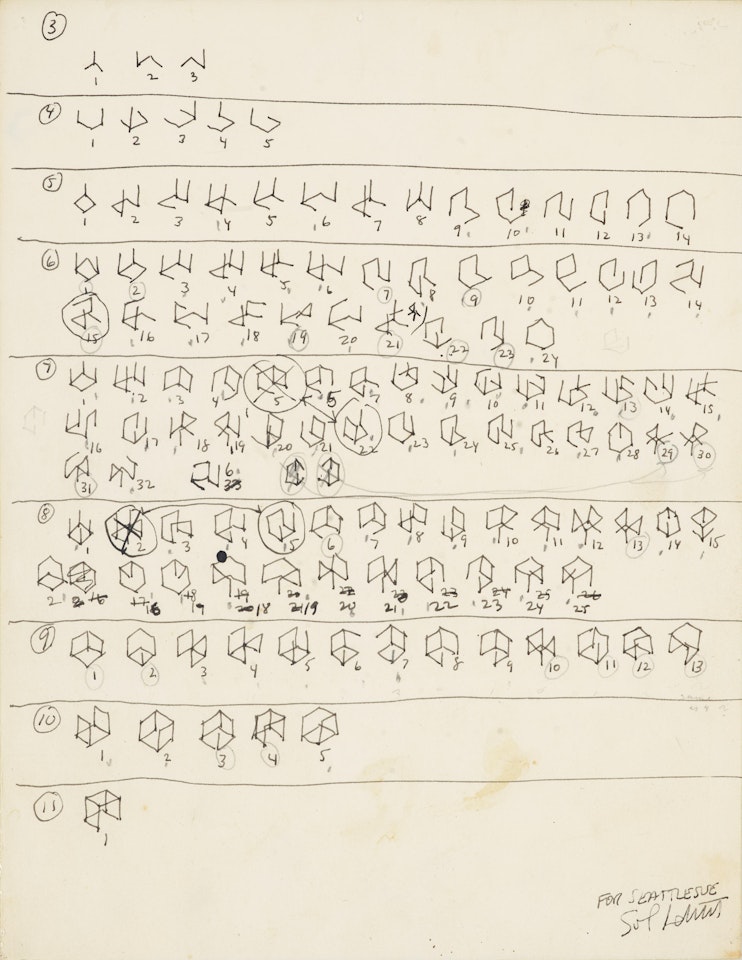 3
1 2 3
4
1 2 3 4 5
5
1 2 3 4 5 6 7 8 9 10 11 12 13 14
6
1 2 3 4 5 6 7 8 9 10 11 12 13 14
15 16 17 18 19 20 21 22 23 24
7
1 2 3 4 5 6 7 8 9 10 11 12 13 14 15
16 17 18 19 20 21 22 23 24 25 26 27 28 29 30
31 32
8
1 2 3 4 5 6 7 8 9 10 11 12 13 14 15
16 18 19 20 21 22 23 24 25
9
1 2 3 4 5 6 7 8 9 10 11 12 13
10
1 2 3 4 5
11
1
FOR SEATTLESUE
Sol LeWitt